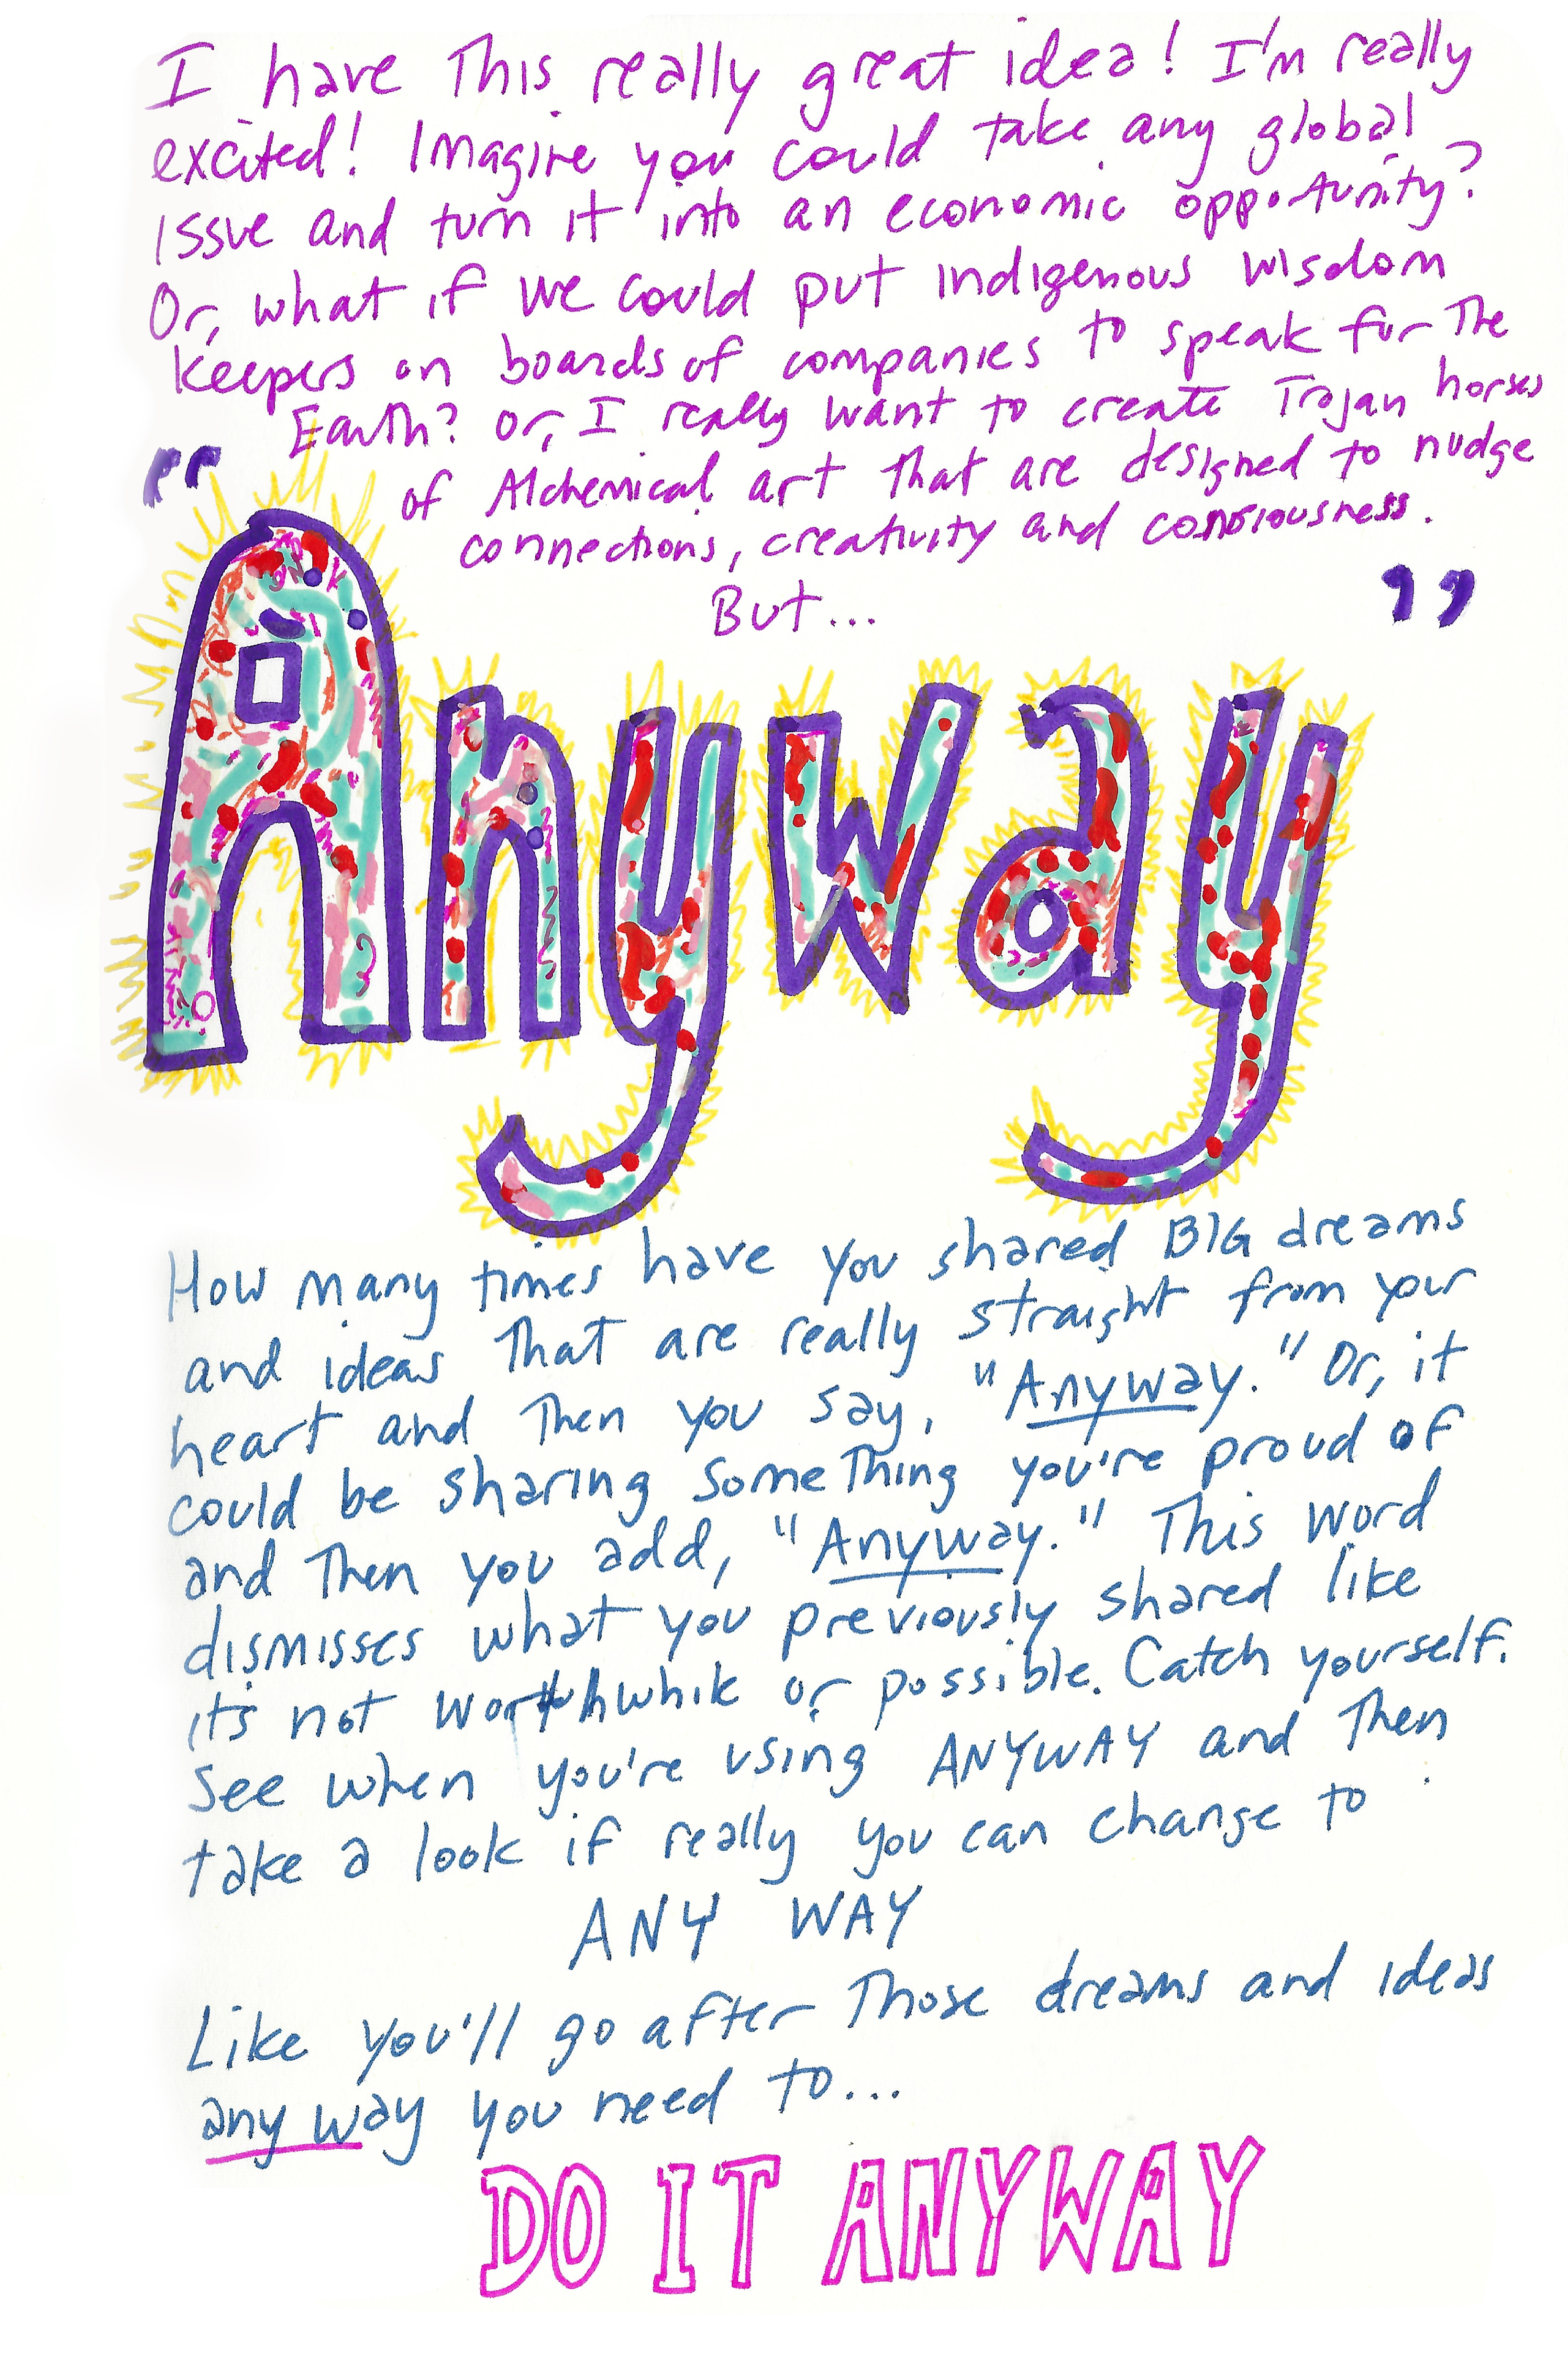 I have This really great idea! I'm really
excited! Imagine you could take any global
issue and turn it into an economic opportunity?
Or, what if we could put indigenous wisdom
keepers on boards of companies to speak for The
Earth? or, I really want to create Trojan horses
of Alchemical art that are designed to nudge
connections, creativity and consciousness.
But...
"Anyway"
How many times have you shared BIG dreams
and ideas That are really straight from your
heart and Then you say, "Anyway." Or, it
could be sharing something you're proud of
and Then you add, "Anyway." This word
dismisses what you previously shared like
it's not worthwhile or possible. Catch yourself.
See when you're using ANYWAY and Then
take a look if really you can change to
ANY WAY
Like you'll go after Those dreams and ideas
any way you need to...
DO IT ANYWAY